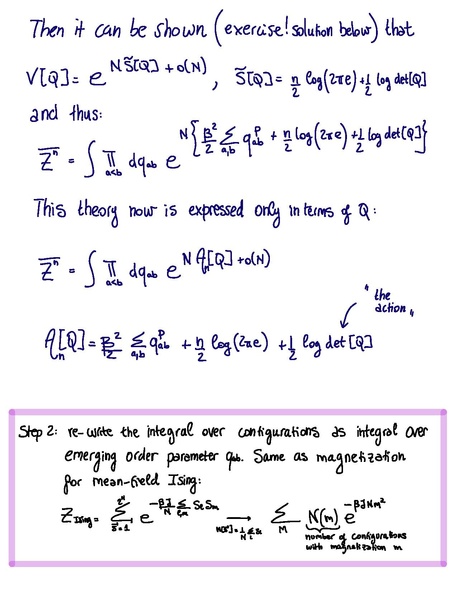 Then it can be shown (exercise! solution below) that
V[Q] = e^{N S̃[Q] + o(N)}, S̃[Q] = n/2 log(2πe) + 1/2 log det[Q]
and thus:
\overline{Z^n} = ∫ ∏_{a<b} dq_{ab} e^{N{β²/2 Σ_{a,b} q_{ab}^p + n/2 log(2πe) + 1/2 log det[Q]}}
This theory now is expressed only in terms of Q:
\overline{Z^n} = ∫ ∏_{a<b} dq_{ab} e^{N A_n[Q] + o(N)}
"the
action"
A_n[Q] = β²/2 Σ_{a,b} q_{ab}^p + n/2 log(2πe) + 1/2 log det[Q]
Step 2: re-write the integral over configurations as integral over
emerging order parameter q_{ab}. Same as magnetization
for mean-field Ising:
Z_{Ising} = Σ_{s̄=1}^{2^N} e^{-βJ/N Σ_{l,m} S_l S_m} → Σ_M N(m) e^{-βJNm²}
number of configurations
with magnetization m